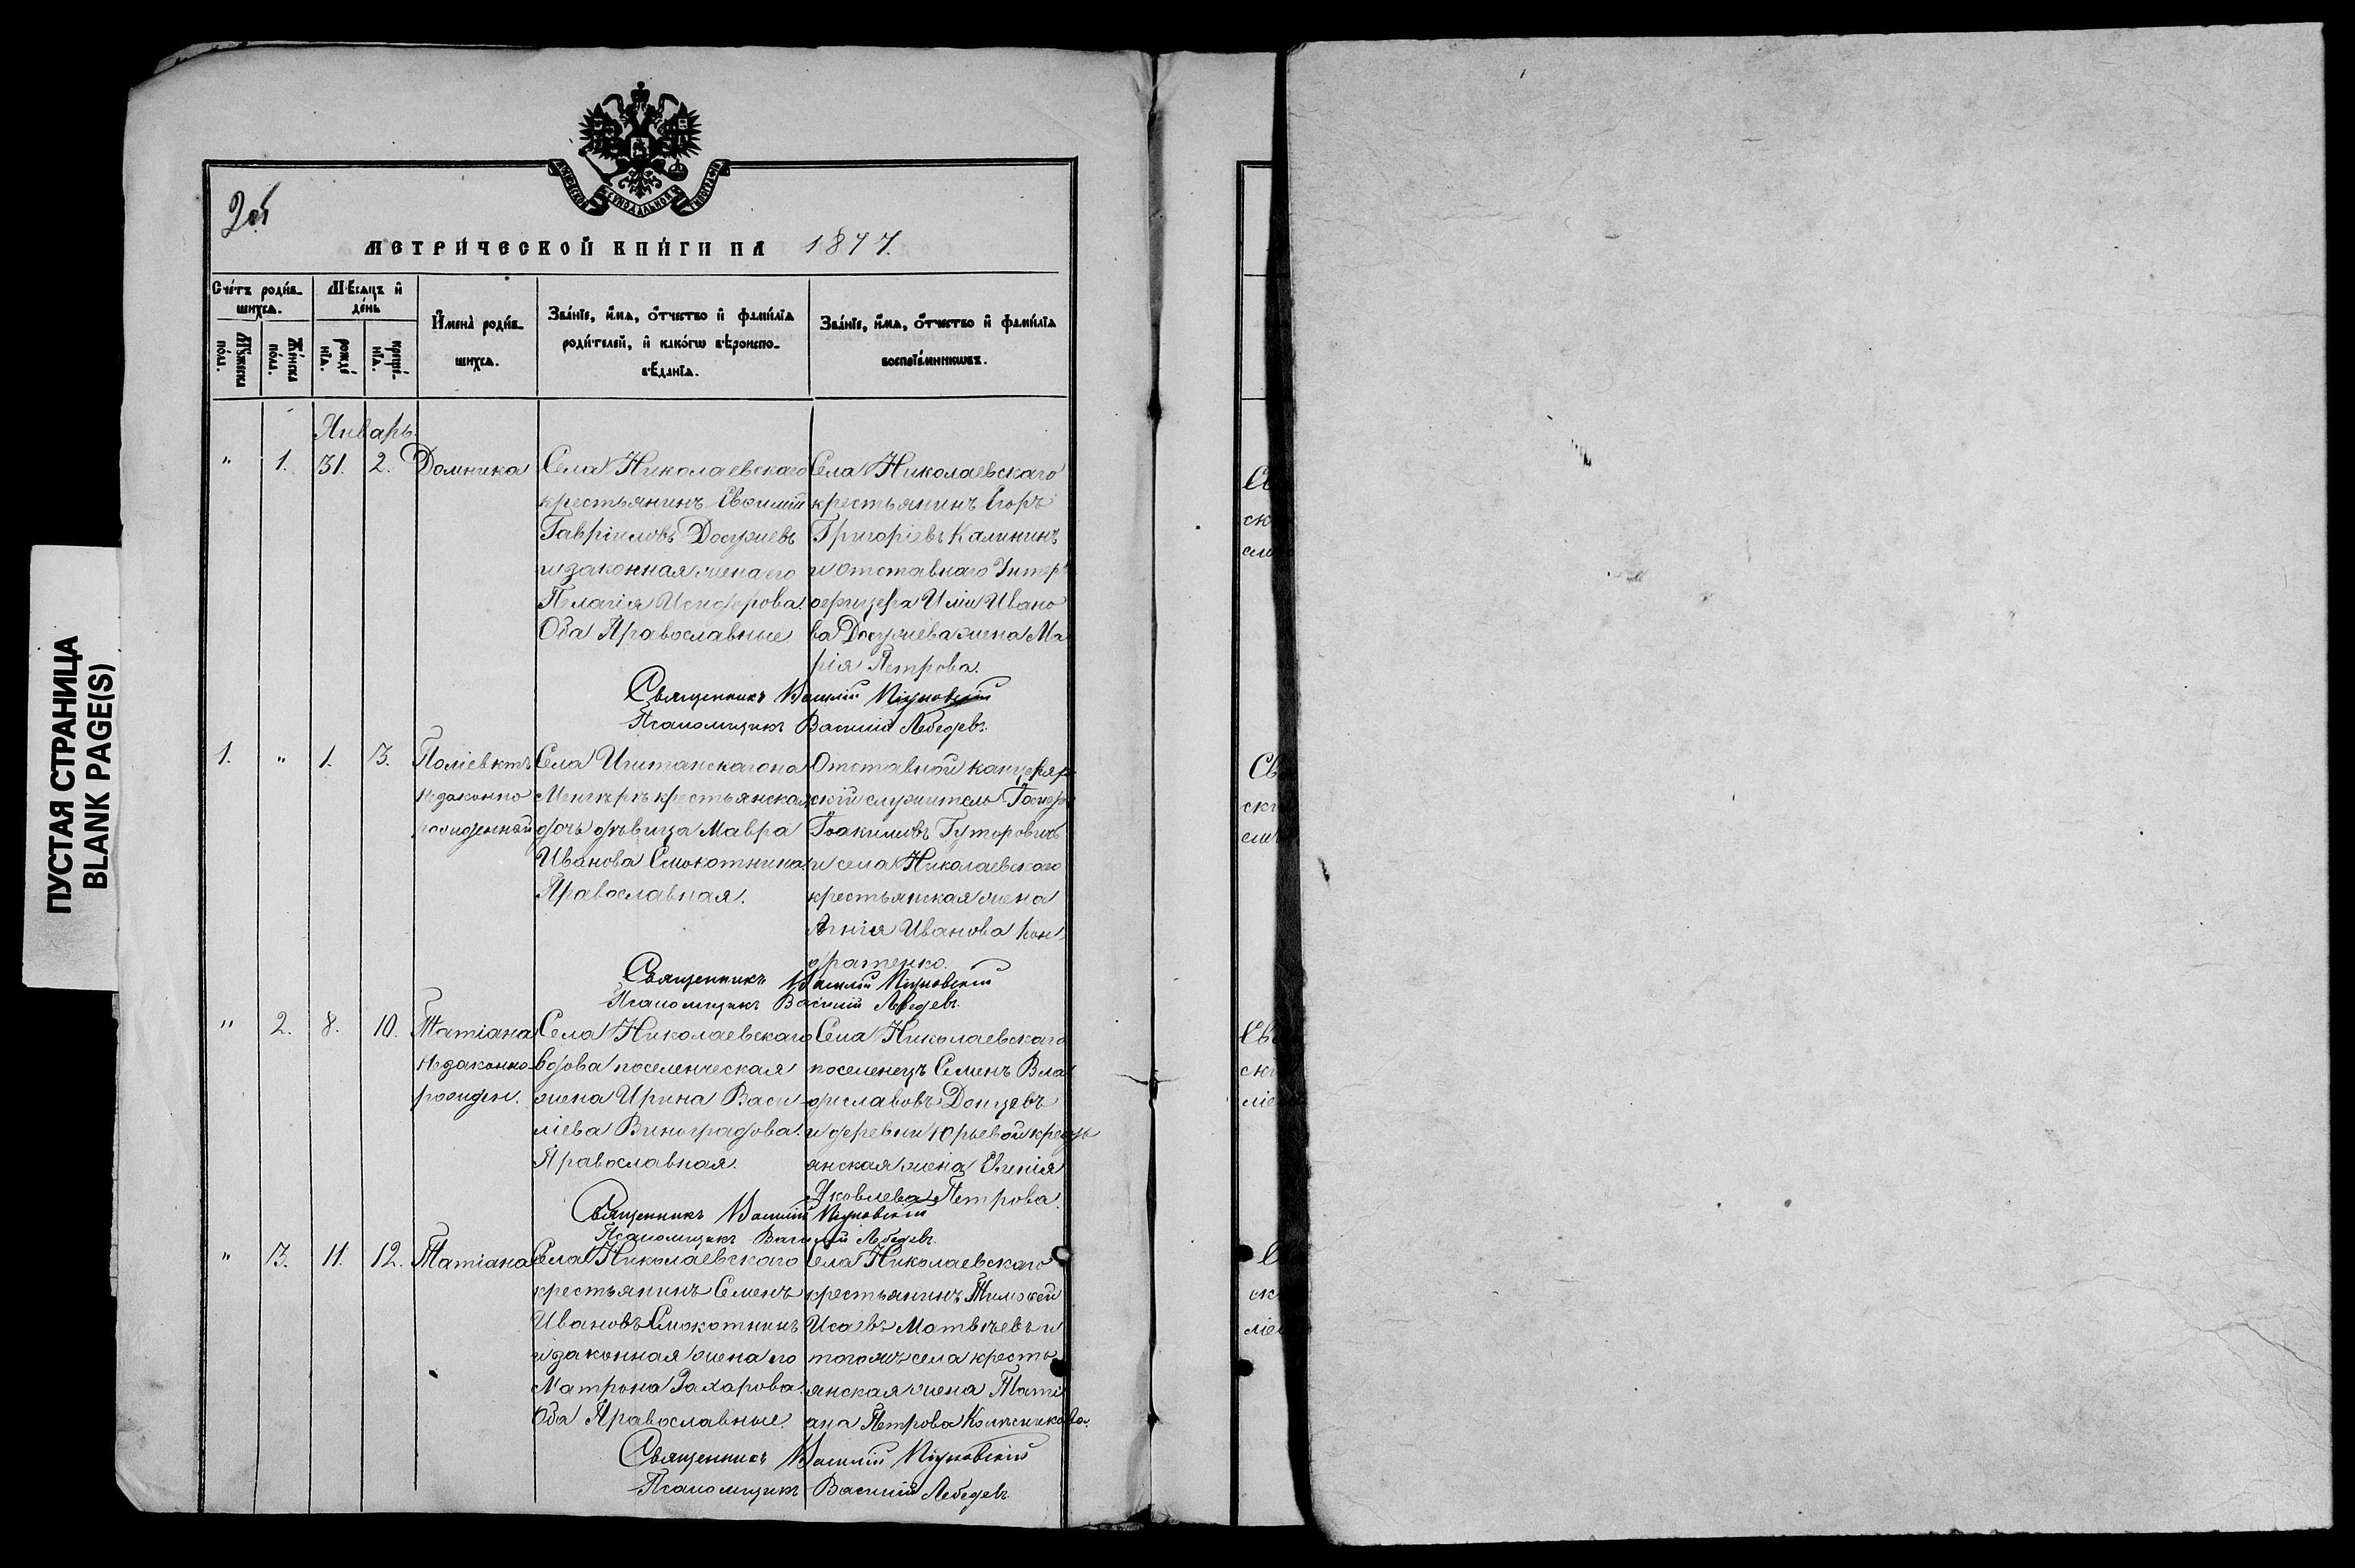 ПУСТАЯ СТРАНИЦА
BLANK PAGE(S)
2об
МОСКОВСКОЙ СУНОДАЛЬНОЙ ТИПОГРАФИИ
МЕТРИ́ЧЕСКОЙ КНИ́ГИ НА 1877.
Счéтъ роди́в-
шихсѧ.
Мѣ́сѧцъ и҆
дéнь
Мꙋ́жеска
пóла.
Жéнска
пóла.
рождé
нїѧ.
крещé-
нїѧ.
И҆менà роди́в-
шихсѧ.
Звáнїе, и҆́мѧ, ѻ҆́тчество и҆ фами́лїѧ
роди́телей, и҆ какóгѡ вѣроиспо-
вѣ́данїѧ.
Звáнїе, и҆́мѧ, ѻ҆́тчество и҆ фами́лїѧ
воспрїе́мникѡвъ.
Январь.
" 1. 31. 2. Домника
Села Николаевскаго
крестьянинъ Евѳимій
Гавріиловъ Досужевъ
и законная жена его
Пелагія Исидорова.
Оба Православные
Села Николаевскаго
крестьянинъ Егоръ
Григорьевъ Калининъ
и отставнаго Унтеръ
офицера Иліи Ивано
ва Досужева жена Ма
рія Петрова.
Священникъ Василій
Псаломщикъ Василій Лебедевъ.
1. " 1. 3. Поліевктъ
Незаконно
рожденный
Села Ингитанскаго на
крестьянская
дочь дѣвица Мавра
Иванова Смокотнина
Православная.
Отставной канцеляр
скій служитель
Іоакимовъ Гуторовичъ
и села Николаевскаго
крестьянская жена
Агнія Иванова Кон
дратенко.
Священникъ Василій
Псаломщикъ Василій Лебедевъ.
" 2. 8. 10. Татіана
Незаконно-
рожден.
Села Николаевскаго
вдова поселенческая
жена Ирина Васи
ліева Виноградова.
Православная.
Села Николаевскаго
поселенецъ Семенъ Вла
диславовъ Донцевъ
и деревни Юрьевой кресть
янская жена
Яковлева Петрова.
Священникъ Василій
Псаломщикъ Василій Лебедевъ.
" 3. 11. 12. Татіана
Села Николаевскаго
крестьянинъ Семенъ
Ивановъ Смокотнинъ
и законная жена его
Матрона Захарова.
Оба Православные.
Села Николаевскаго
крестьянинъ Тимоѳей
Исаевъ Матвѣевъ и
того жъ села кресть
янская жена Тати
ана Петрова Колесникова.
Священникъ Василій
Псаломщикъ Василій Лебедевъ.